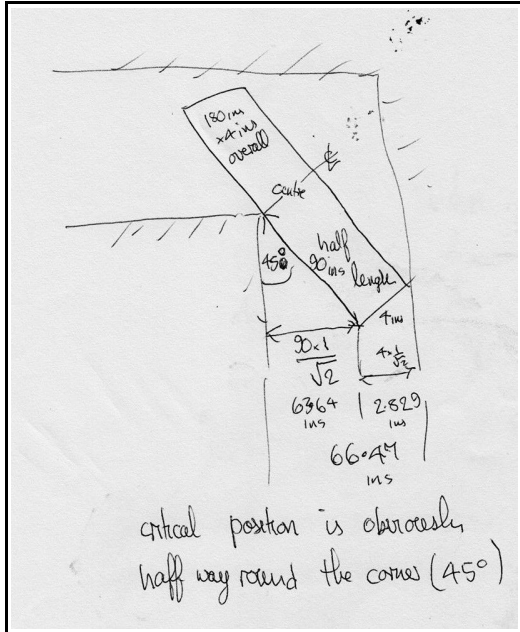 180 ins
x 4 ins
overall
℄
centre
45°
half
90 ins
length
4 ins
90 x 1
√2
4 x 1
√2
63.64
ins
2.829
ins
66.47
ins
critical position is obviously
half way round the corner (45°)